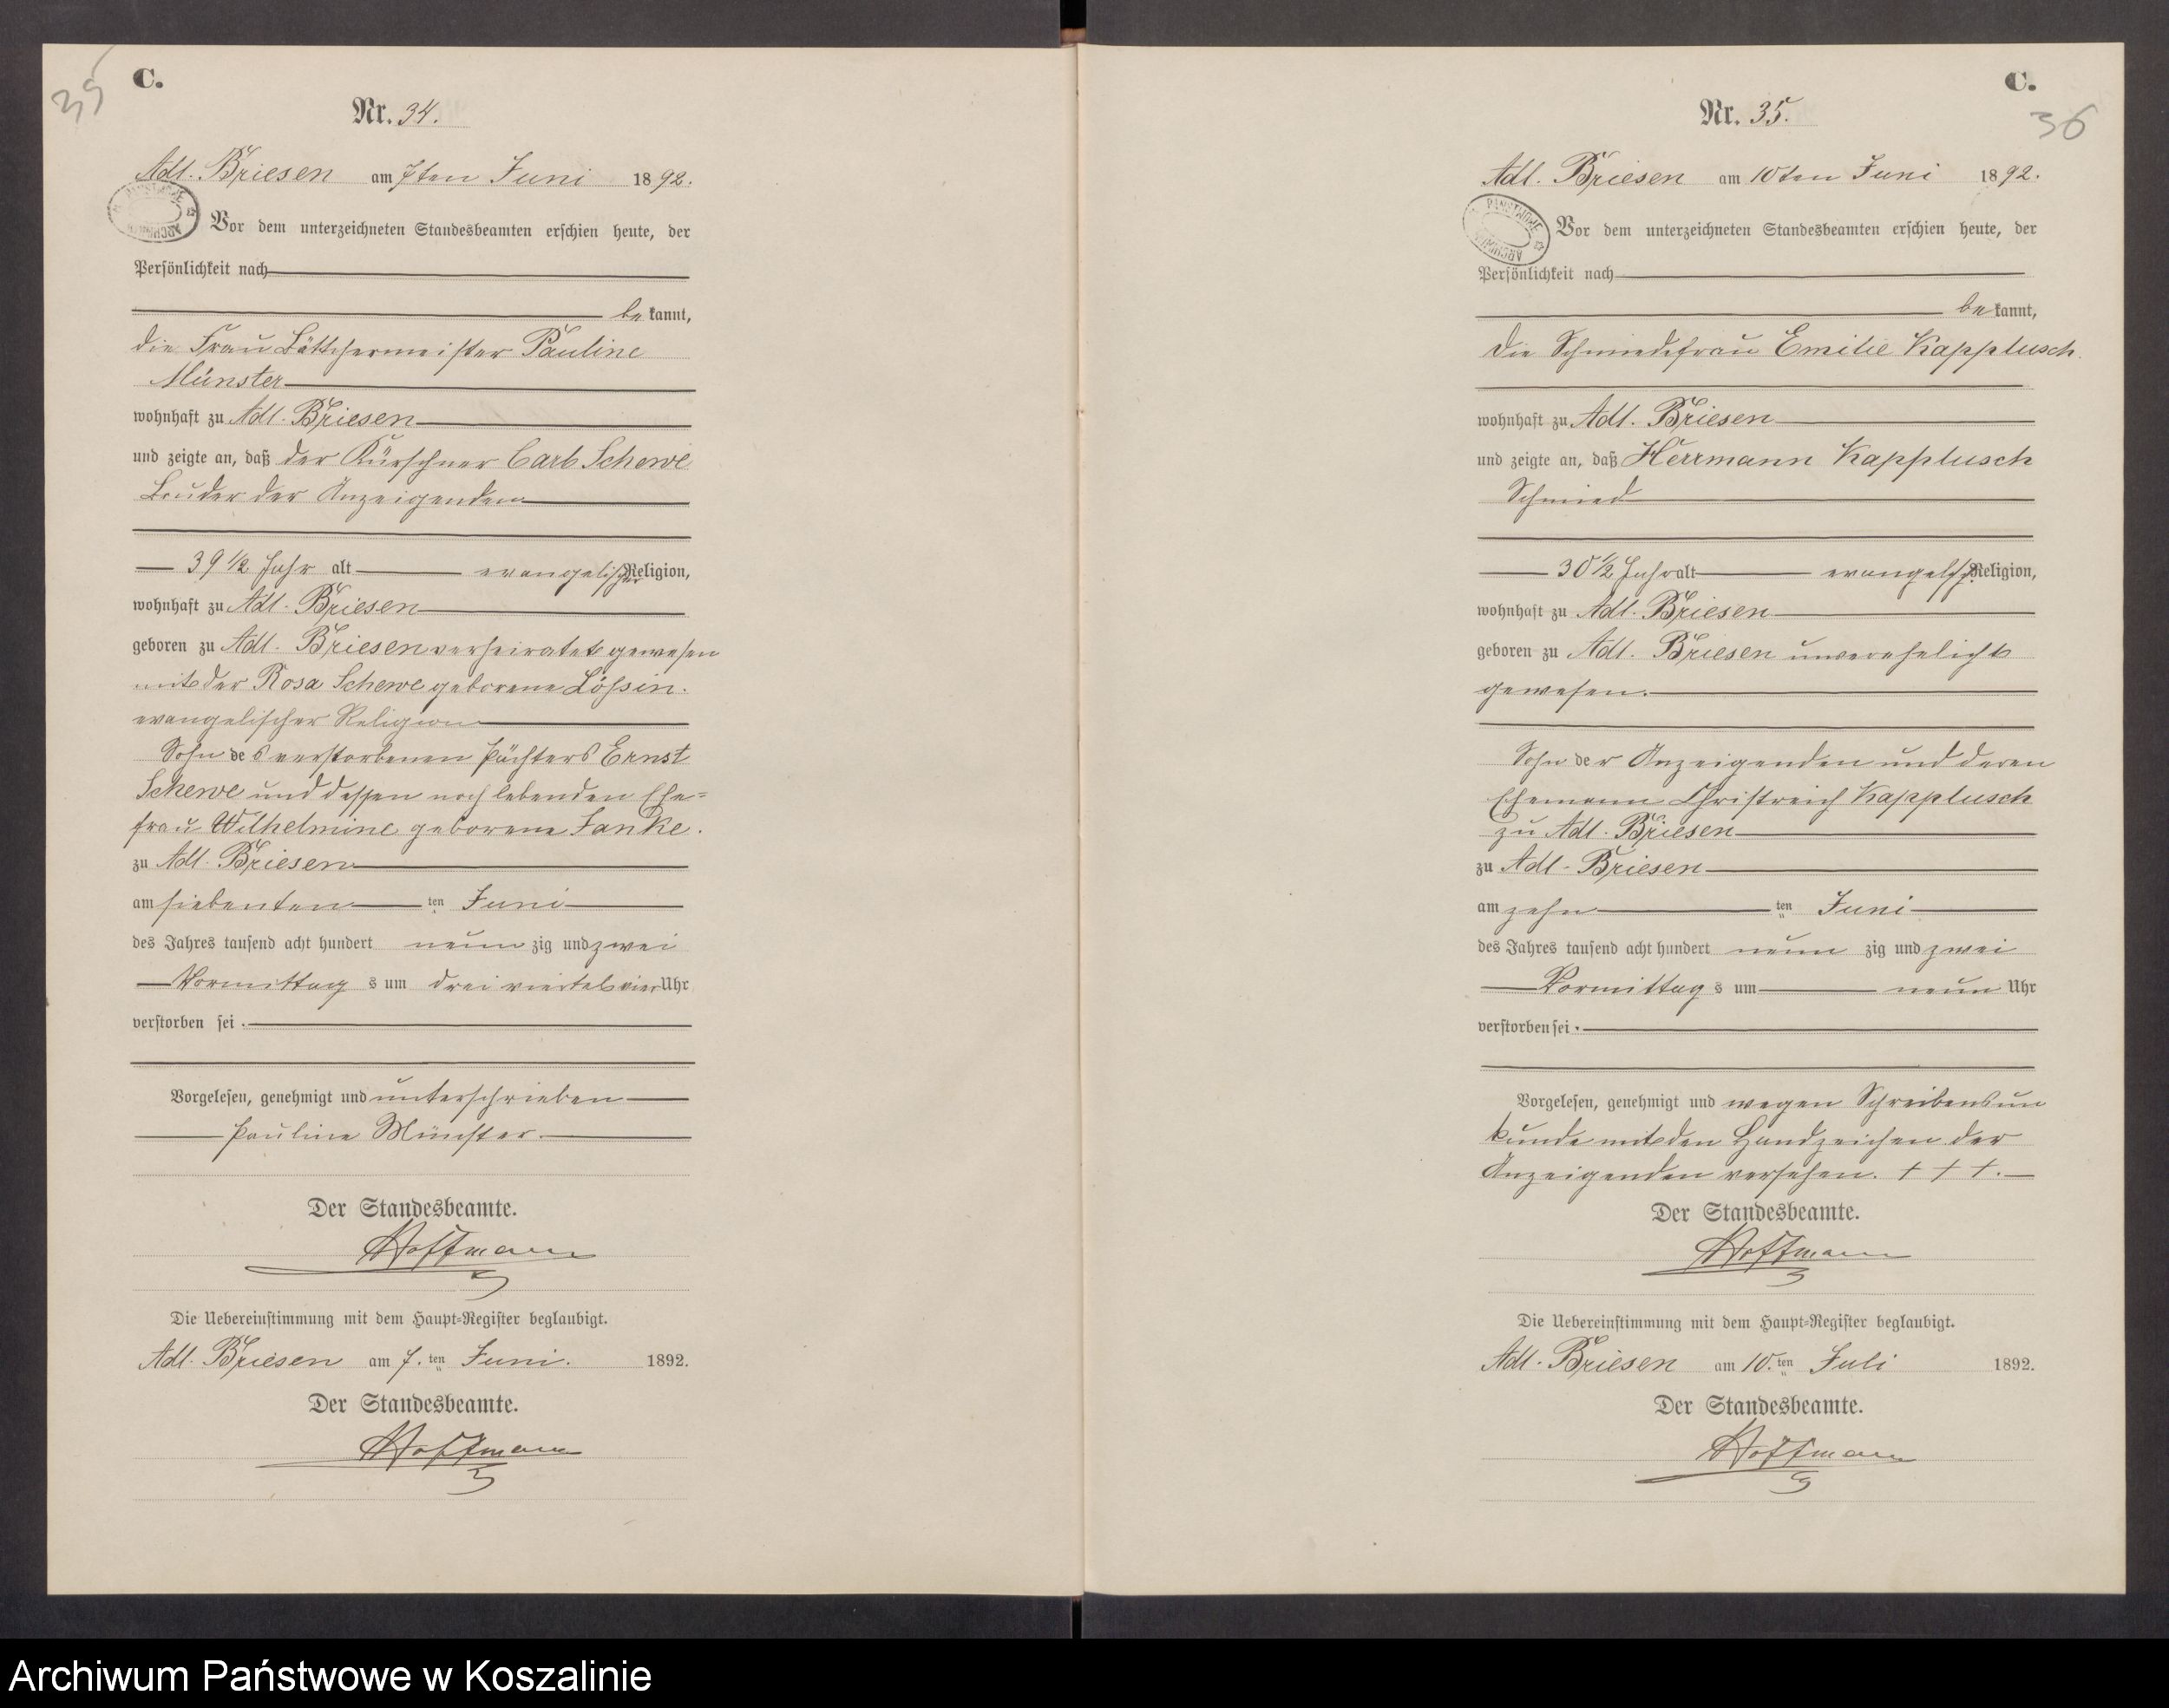 35
C.
Nr. 34.
Adl. Briesen am 7ten Juni 1892.
Vor dem unterzeichneten Standesbeamten erschien heute, der
Persönlichkeit nach
be kannt,
die Frau Böttchermeister Pauline
Münster
wohnhaft zu Adl. Briesen
und zeigte an, daß der Kürschner Carl Schewe
Bruder der Anzeigenden
39 1/2 Jahr alt evangelischer Religion,
wohnhaft zu Adl. Briesen
geboren zu Adl. Briesen verheiratet gewesen
mit der Rosa Schewe geborene Lößin.
evangelischer Religion
Sohn des verstorbenen Pächters Ernst
Schewe und dessen noch lebenden Ehe=
frau Wilhelmine geborene Janke.
zu Adl. Briesen
am siebenten ten Juni
des Jahres tausend acht hundert neun zig und zwei
Vormittag s um drei viertel vier Uhr
verstorben sei.
Vorgelesen, genehmigt und unterschrieben
Pauline Münster
Der Standesbeamte.
Hoffmann
Die Uebereinstimmung mit dem Haupt=Register beglaubigt.
Adl. Briesen am 7. ten Juni. 1892.
Der Standesbeamte.
Hoffmann
C.
36
Nr. 35.
Adl. Briesen am 10ten Juni 1892.
PAŃSTWOWE ARCHIWUM
Vor dem unterzeichneten Standesbeamten erschien heute, der
Persönlichkeit nach
be kannt,
die Schmiedefrau Emilie Kapplusch
wohnhaft zu Adl. Briesen
und zeigte an, daß Herrmann Kapplusch
Schmied
30 1/2 Jahr alt evangelisch. Religion,
wohnhaft zu Adl. Briesen
geboren zu Adl. Briesen unverehelicht
gewesen.
Sohn der Anzeigenden und deren
Ehemann Christreich Kapplusch
zu Adl. Briesen
zu Adl. Briesen
am zehn ten Juni
des Jahres tausend acht hundert neun zig und zwei
Vormittag s um neun Uhr
verstorben sei.
Vorgelesen, genehmigt und wegen Schreibensun
kunde mit den Handzeichen der
Anzeigenden versehen. + + +.
Der Standesbeamte.
Hoffmann
Die Uebereinstimmung mit dem Haupt=Register beglaubigt.
Adl. Briesen am 10. ten Juli 1892.
Der Standesbeamte.
Hoffmann
Archiwum Państwowe w Koszalinie